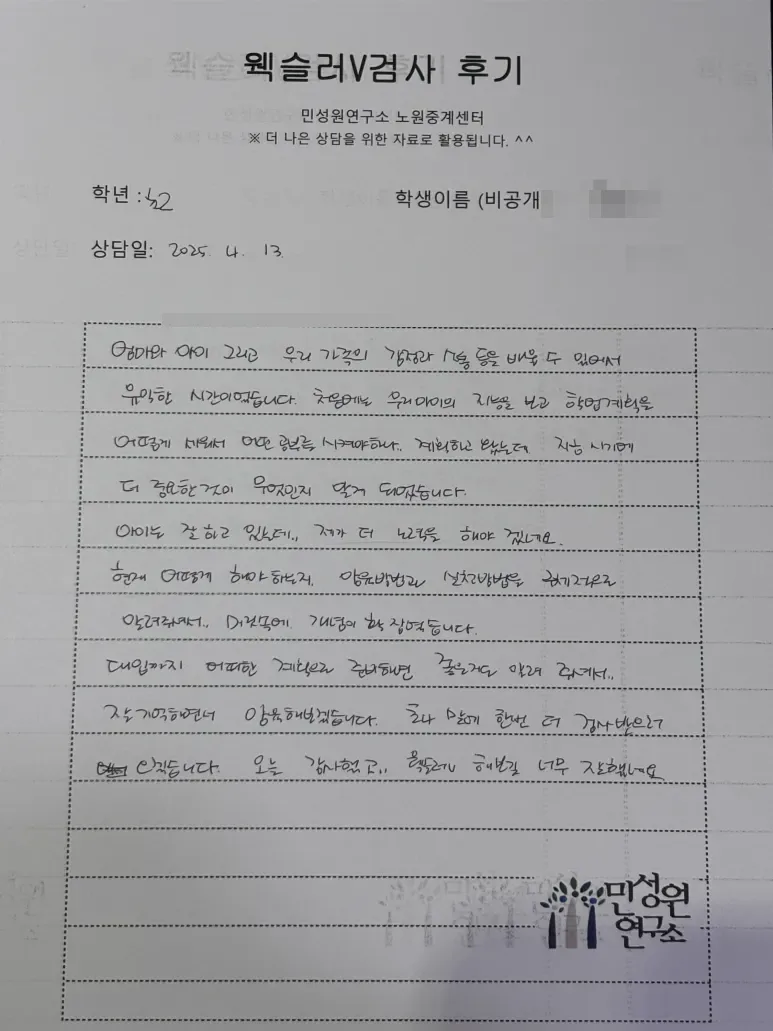 웩슬러V검사 후기
민성원연구소 노원중계센터
※ 더 나은 상담을 위한 자료로 활용됩니다. ^^
학년 : 초2
학생이름 (비공개
상담일: 2025. 4. 13.
엄마와 아이 그리고 우리 가족의 감정과 소통 등을 배울 수 있어서
유익한 시간이었습니다. 처음에는 우리아이의 지능을 보고 학업계획을
어떻게 세워서 어떤 공부를 시켜야하나.. 계획하고 왔는데 지금 시기에
더 중요한것이 무엇인지 알게 되었습니다.
아이는 잘 하고 있는데.. 제가 더 노력을 해야 겠네요.
현재 어떻게 해야 하는지, 양육방법과 실천방법을 구체적으로
알려주셔서.. 머릿속에 개념이 확 잡혔습니다.
대입까지 어떠한 계획으로 준비하면 좋을지도 알려 주셔서..
잘 기억하면서 양육해보겠습니다. 초4 말에 한번 더 검사받으러
오겠습니다. 오늘 감사했고,, 웩슬러V 해보길 너무 잘했네요
민성원
연구소